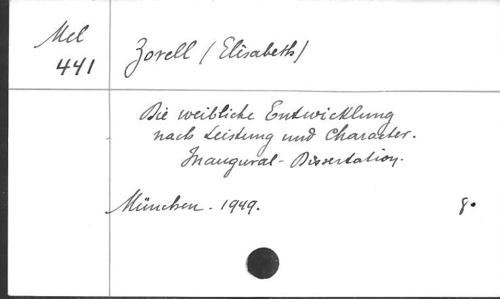 Mel
441
Zorell (Elisabeth)
Die weibliche Entwicklung
nach Leistung und Character.
Inaugural-Dissertation.
München. 1949.
8°